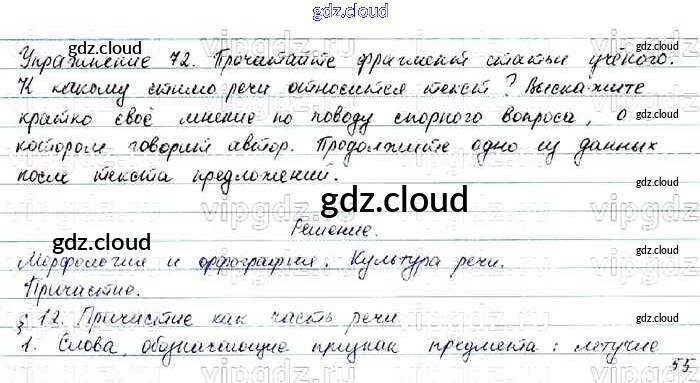 gdz.cloud
Упражнение 72. Прочитайте фрагмент статьи учёного.
К какому стилю речи относится текст? Выскажите
кратко своё мнение по поводу спорного вопроса, о
котором говорит автор. Продолжите одно из данных
после текста предложений.
Решение.
Морфология и орфография. Культура речи.
Причастие.
§ 12. Причастие как часть речи
1. Слова, обозначающие признак предмета: летучие
55